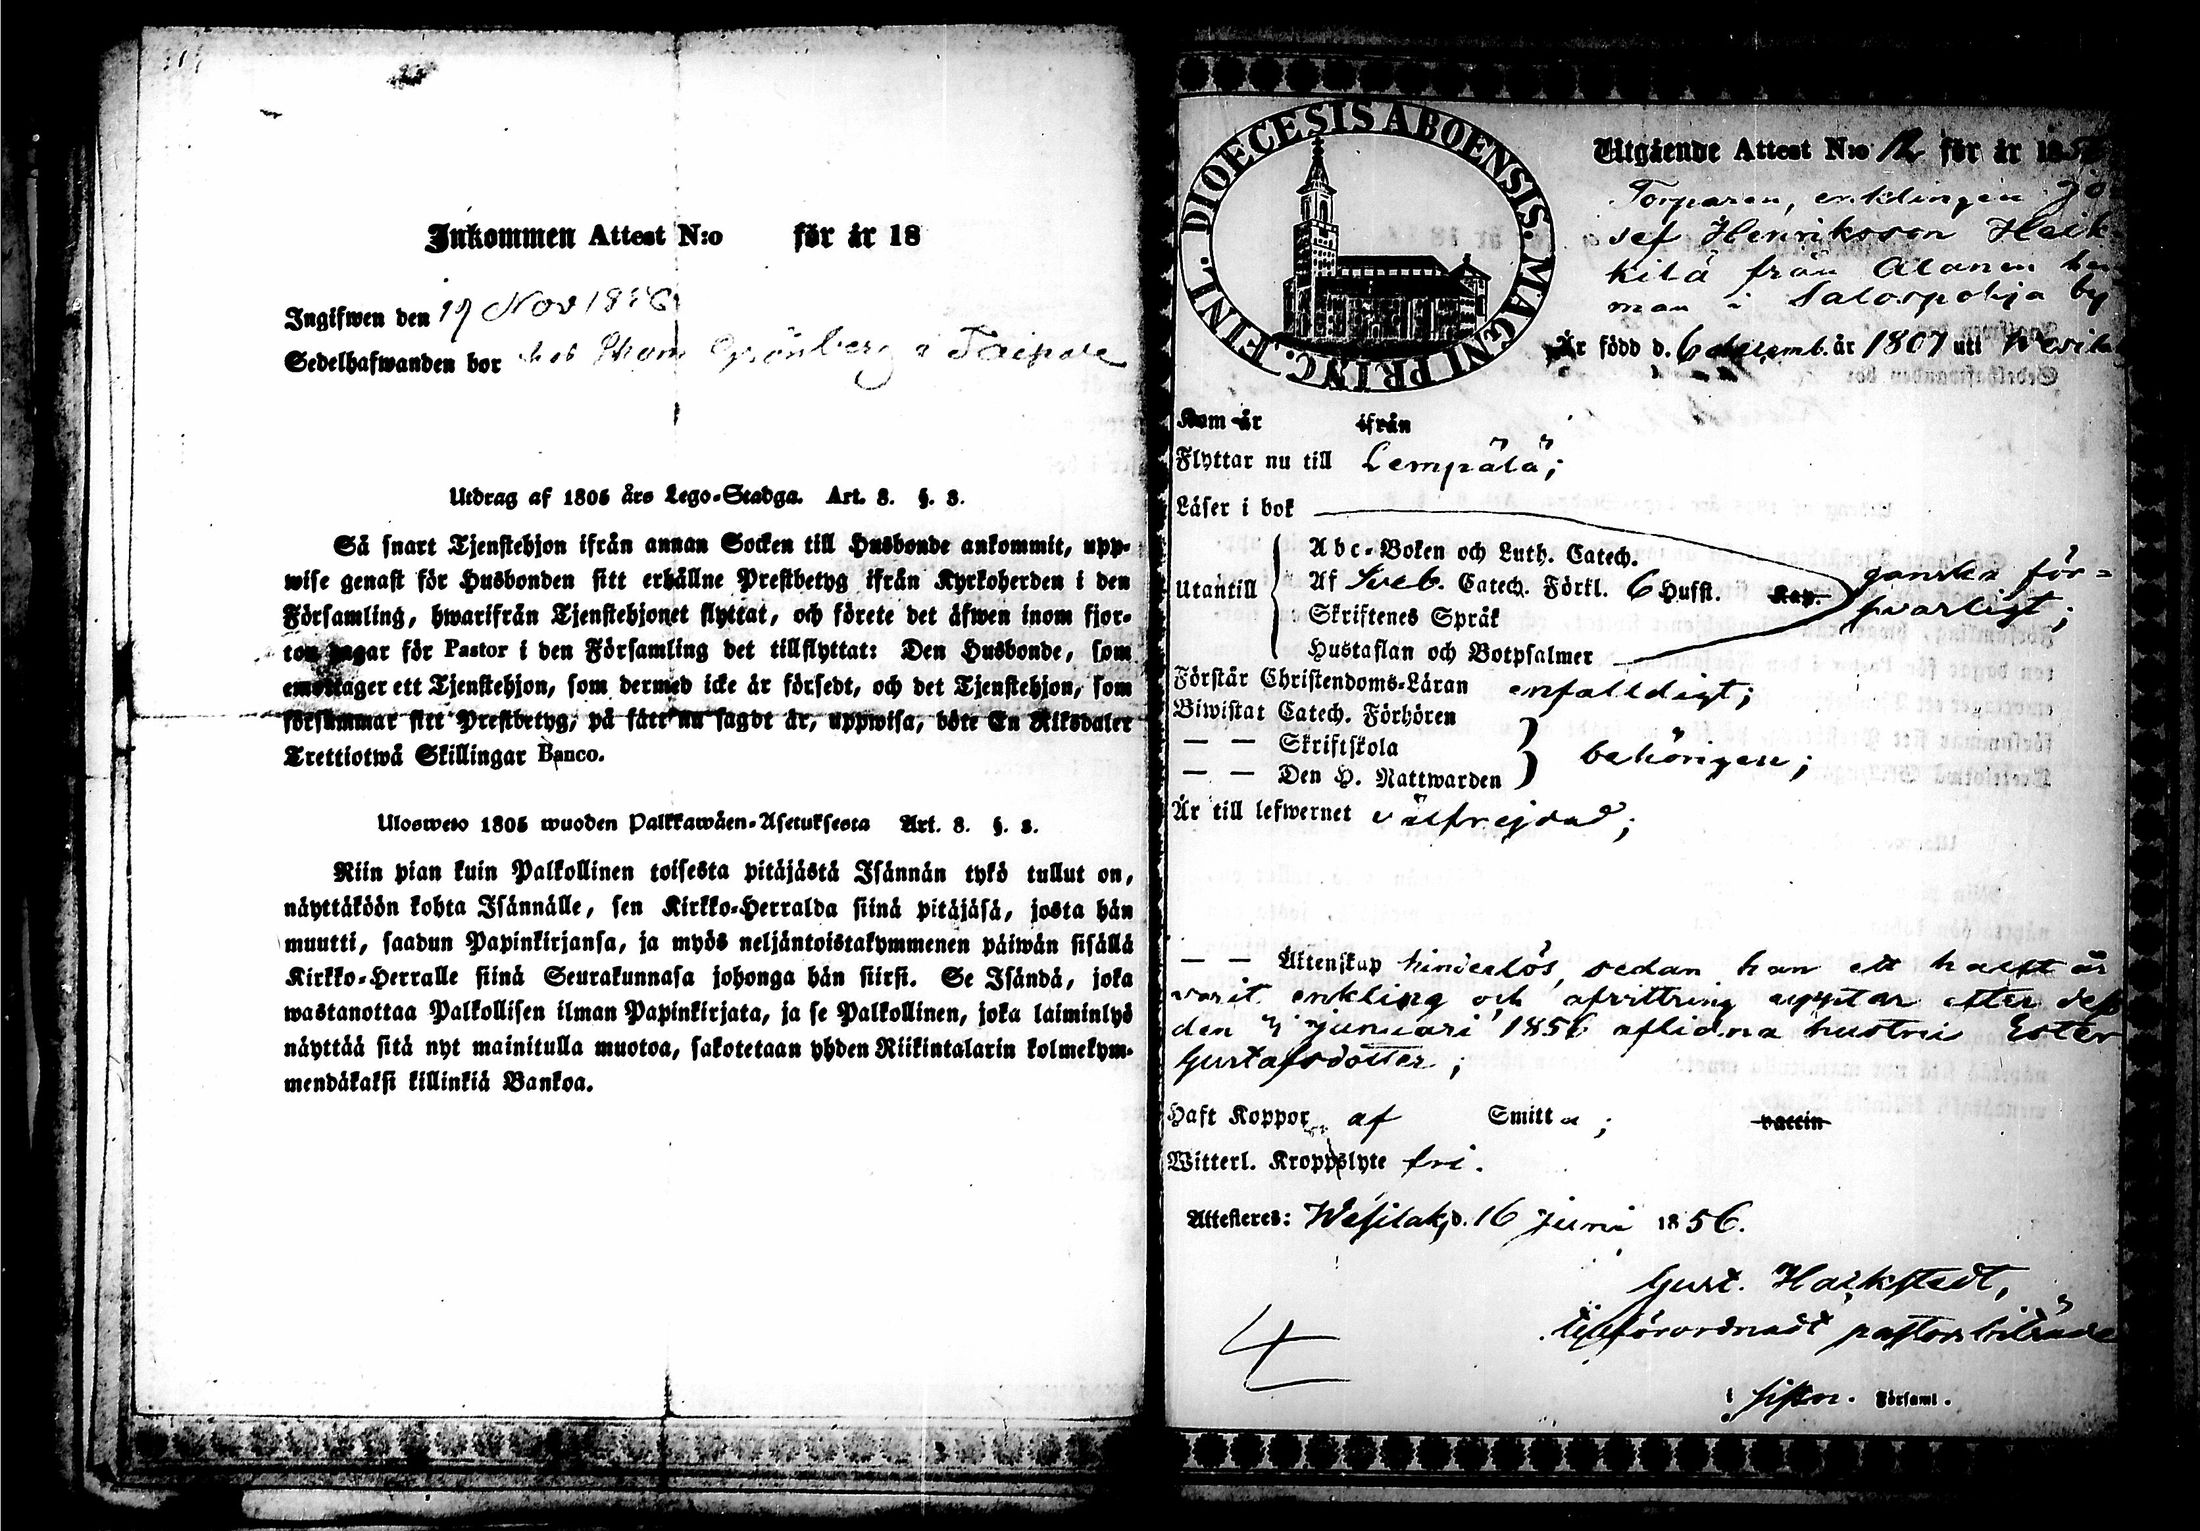 Inkommen Attest N:o för år 18
Ingifwen den 19 Nov 1856
Sedelhafwanden bor hos Grönberg i Taipale
Utdrag af 1805 års Lego-Stadga. Art. 3. §. 3.
Så snart Tjenstehjon ifrån annan Socken till Husbonde ankommit, upp-
wise genast för Husbonden sitt erhållne Prestbetyg ifrån Kyrkoherden i den
Församling, hwarifrån Tjenstehjonet flyttat, och förete det äfwen inom fjor-
ton dagar för Pastor i den Församling det tillflyttat: Den Husbonde, som
emottager ett Tjenstehjon, som dermed icke är försedt, och det Tjenstehjon, som
försummar sitt Prestbetyg, på sätt nu sagdt är, uppwisa, böte En Riksdaler
Trettiotwå Skillingar Banco.
Ulosweto 1805 wuoden Palkkawäen-Asetuksesta Art. 3. §. 3.
Niin pian kuin Palkollinen toisesta pitäjästä Isännän tykö tullut on,
näyttäköön kohta Isännälle, sen Kirkko-Herralda siinä pitäjäsä, josta hän
muutti, saadun Papinkirjansa, ja myös neljäntoistakymmenen päiwän sisällä
Kirkko-Herralle siinä Seurakunnasa johonga hän siirsi. Se Isändä, joka
wastanottaa Palkollisen ilman Papinkirjata, ja se Palkollinen, joka laiminlyö
näyttää sitä nyt mainitulla muotoa, sakotetaan yhden Riikintalarin kolmekym-
mendäkaksi killinkiä Bankoa.
DIOECESIS ABOENSIS. MAGNI PRINC. FINL.
Utgående Attest N:o 12 för år 1856
Torparen, enklingen Jo
sef Henriksson Heik
kilä från Alanen hem
man i Salospohja by
Är född d. 6 decemb. år 1807 uti Wesila
Kom år ifrån
Flyttar nu till Lempälä;
Läser i bok
Abc-Boken och Luth. Catech.
Utantill Af Sveb. Catech. Förkl. 6 Hufst. Kap. ganska för=
Skriftenes Språk svarligt;
Hustaflan och Botpsalmer
Förstår Christendoms-Läran enfalldigt;
Biwistat Catech. Förhören
— — Skriftskola behörigen;
— — Den H. Nattwarden
Är till lefwernet välfrejdad;
— — Äktenskap hinderlös, sedan han ett halft år
varit enkling och afvittring upptar efter dess
den januari 1856 aflidna hustru Ester
Gustafsdotter;
Haft Koppor af Smitta; vaccin
Witterl. Kroppslyte fri.
Attesteres: Wesilaks, d. 16 juni 1856.
Gust. Hackstedt,
förordnadt pastorsbiträde
i Församl.